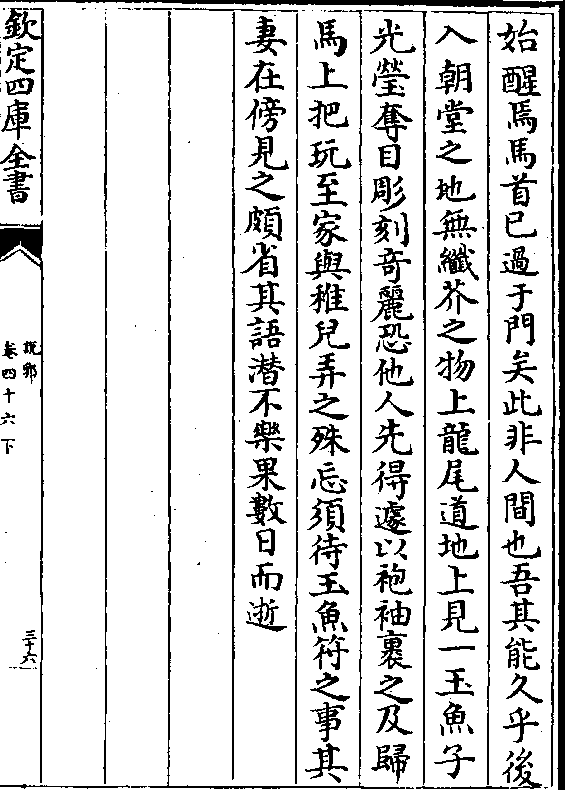 始醒焉馬首已過于門矣此非人間也吾其能久乎後
入朝堂之地無纖芥之物上龍尾道地上見一玉魚子
光瑩奪目彫刻奇麗恐他人先得遽以袍袖裹之及歸
馬上把玩至家與稚兒弄之殊忘須待玉魚符之事其
妻在傍見之頗省其語潛不樂果數日而逝
欽定四庫全書
說郛
卷四十六下
三十六